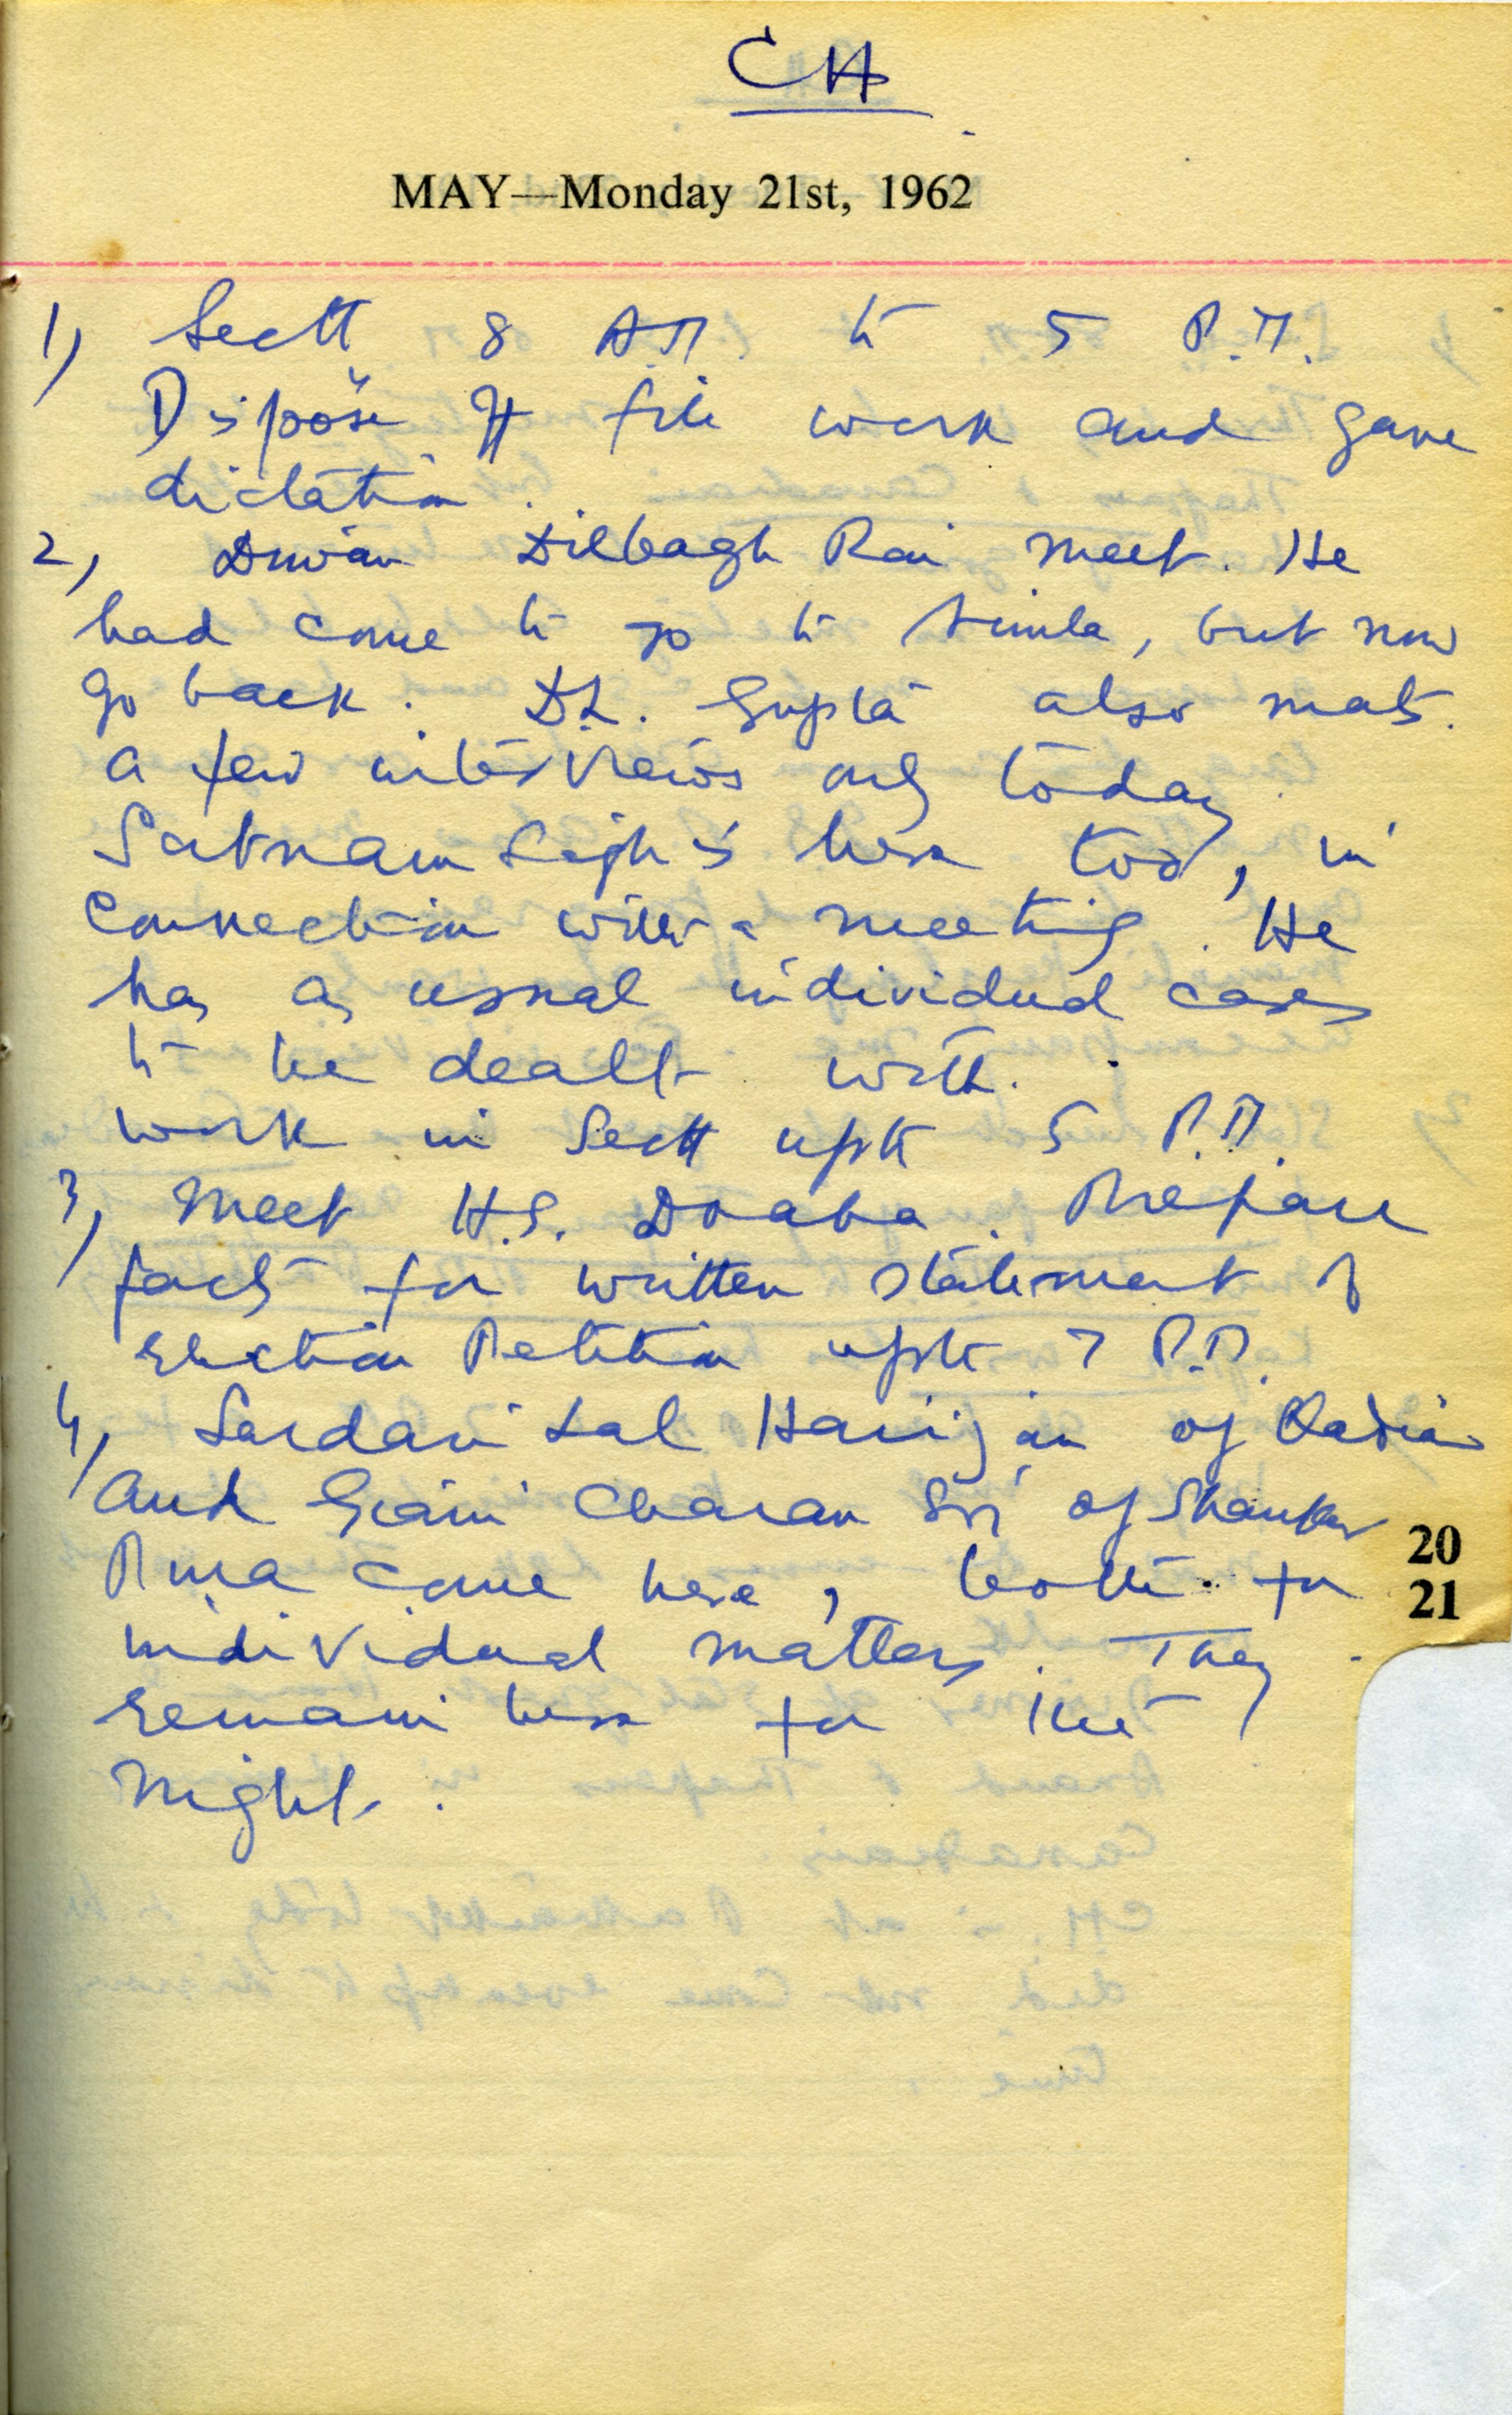 CH
MAY—Monday 21st, 1962
1) Sectt 8 A.M. to 5 P.M.
Dispose off file work and gave
dictation.
2, Diwan Dilbagh Rai meet. He
had come to go to Simla, but now
go back. D.L. Gupta also mets.
a few interviews only today.
Satnam Singh is here too, in
connection with a meeting. He
has as usual individual cases
to be dealt with.
work in Sectt upto 5 P.M.
3, Meet H.S. Doaba. Prepare
facts for written statement of
Election Petition upto 7 P.M.
4, Sardari Lal Harijan of Qadian
and Giani Charan Sri of Shankar
Pura came here, both for
20
individual matters. They
21
remain here for the
night.